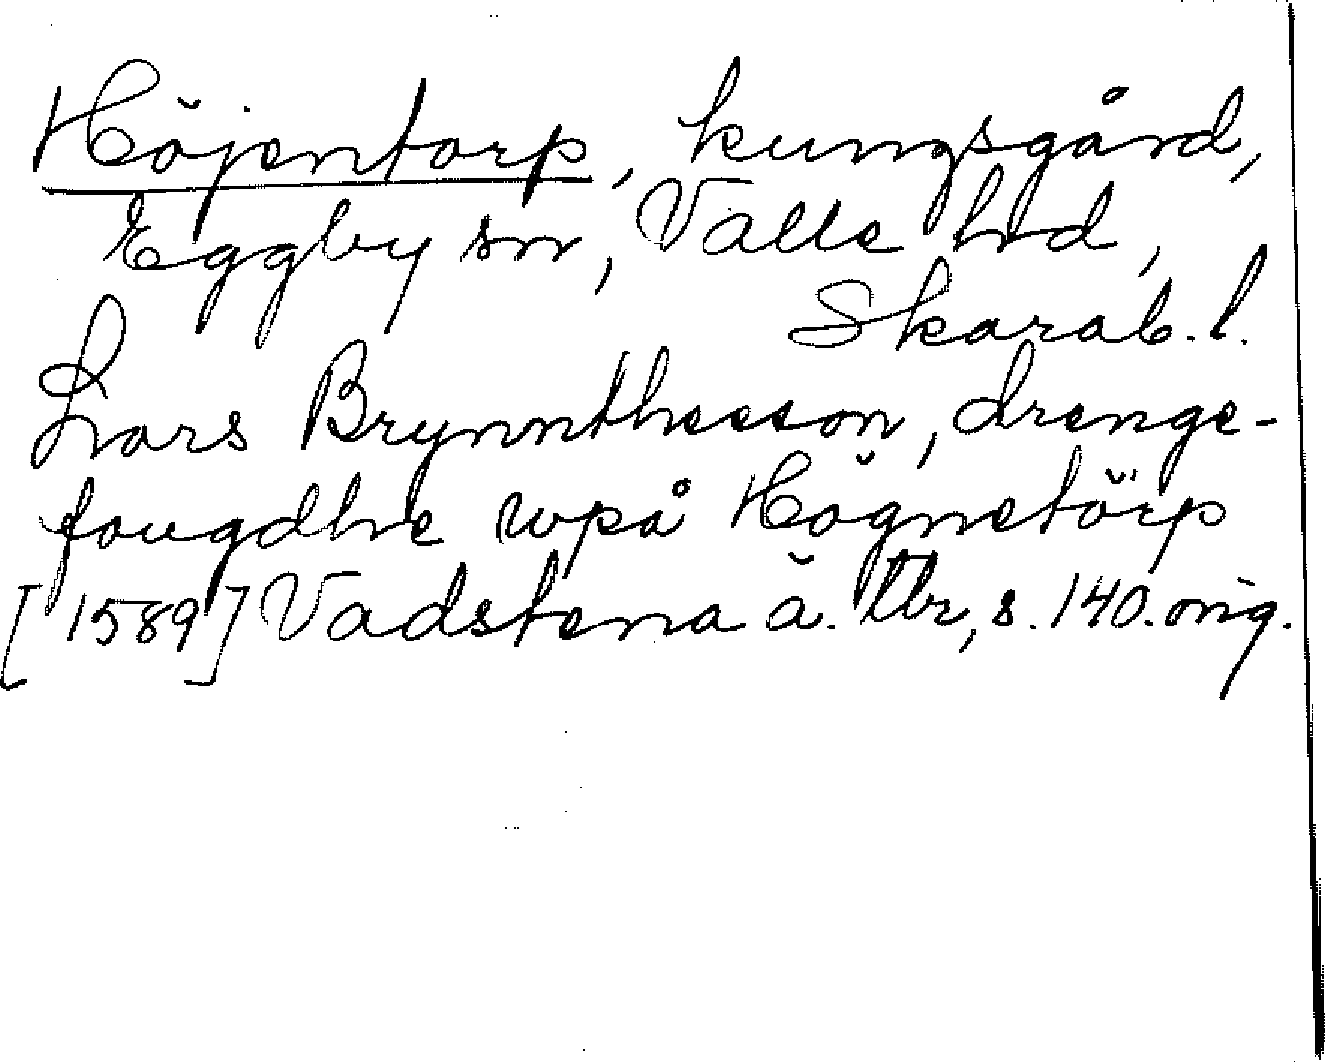 Höjentorp, kungsgård,
Eggby sn, Valle hd,
Skarab. l.
Lars Brynntheson, drenge-
fougdhe wpå Högnetörp
[1589] Vadstena ä. tbr, s. 140. orig.